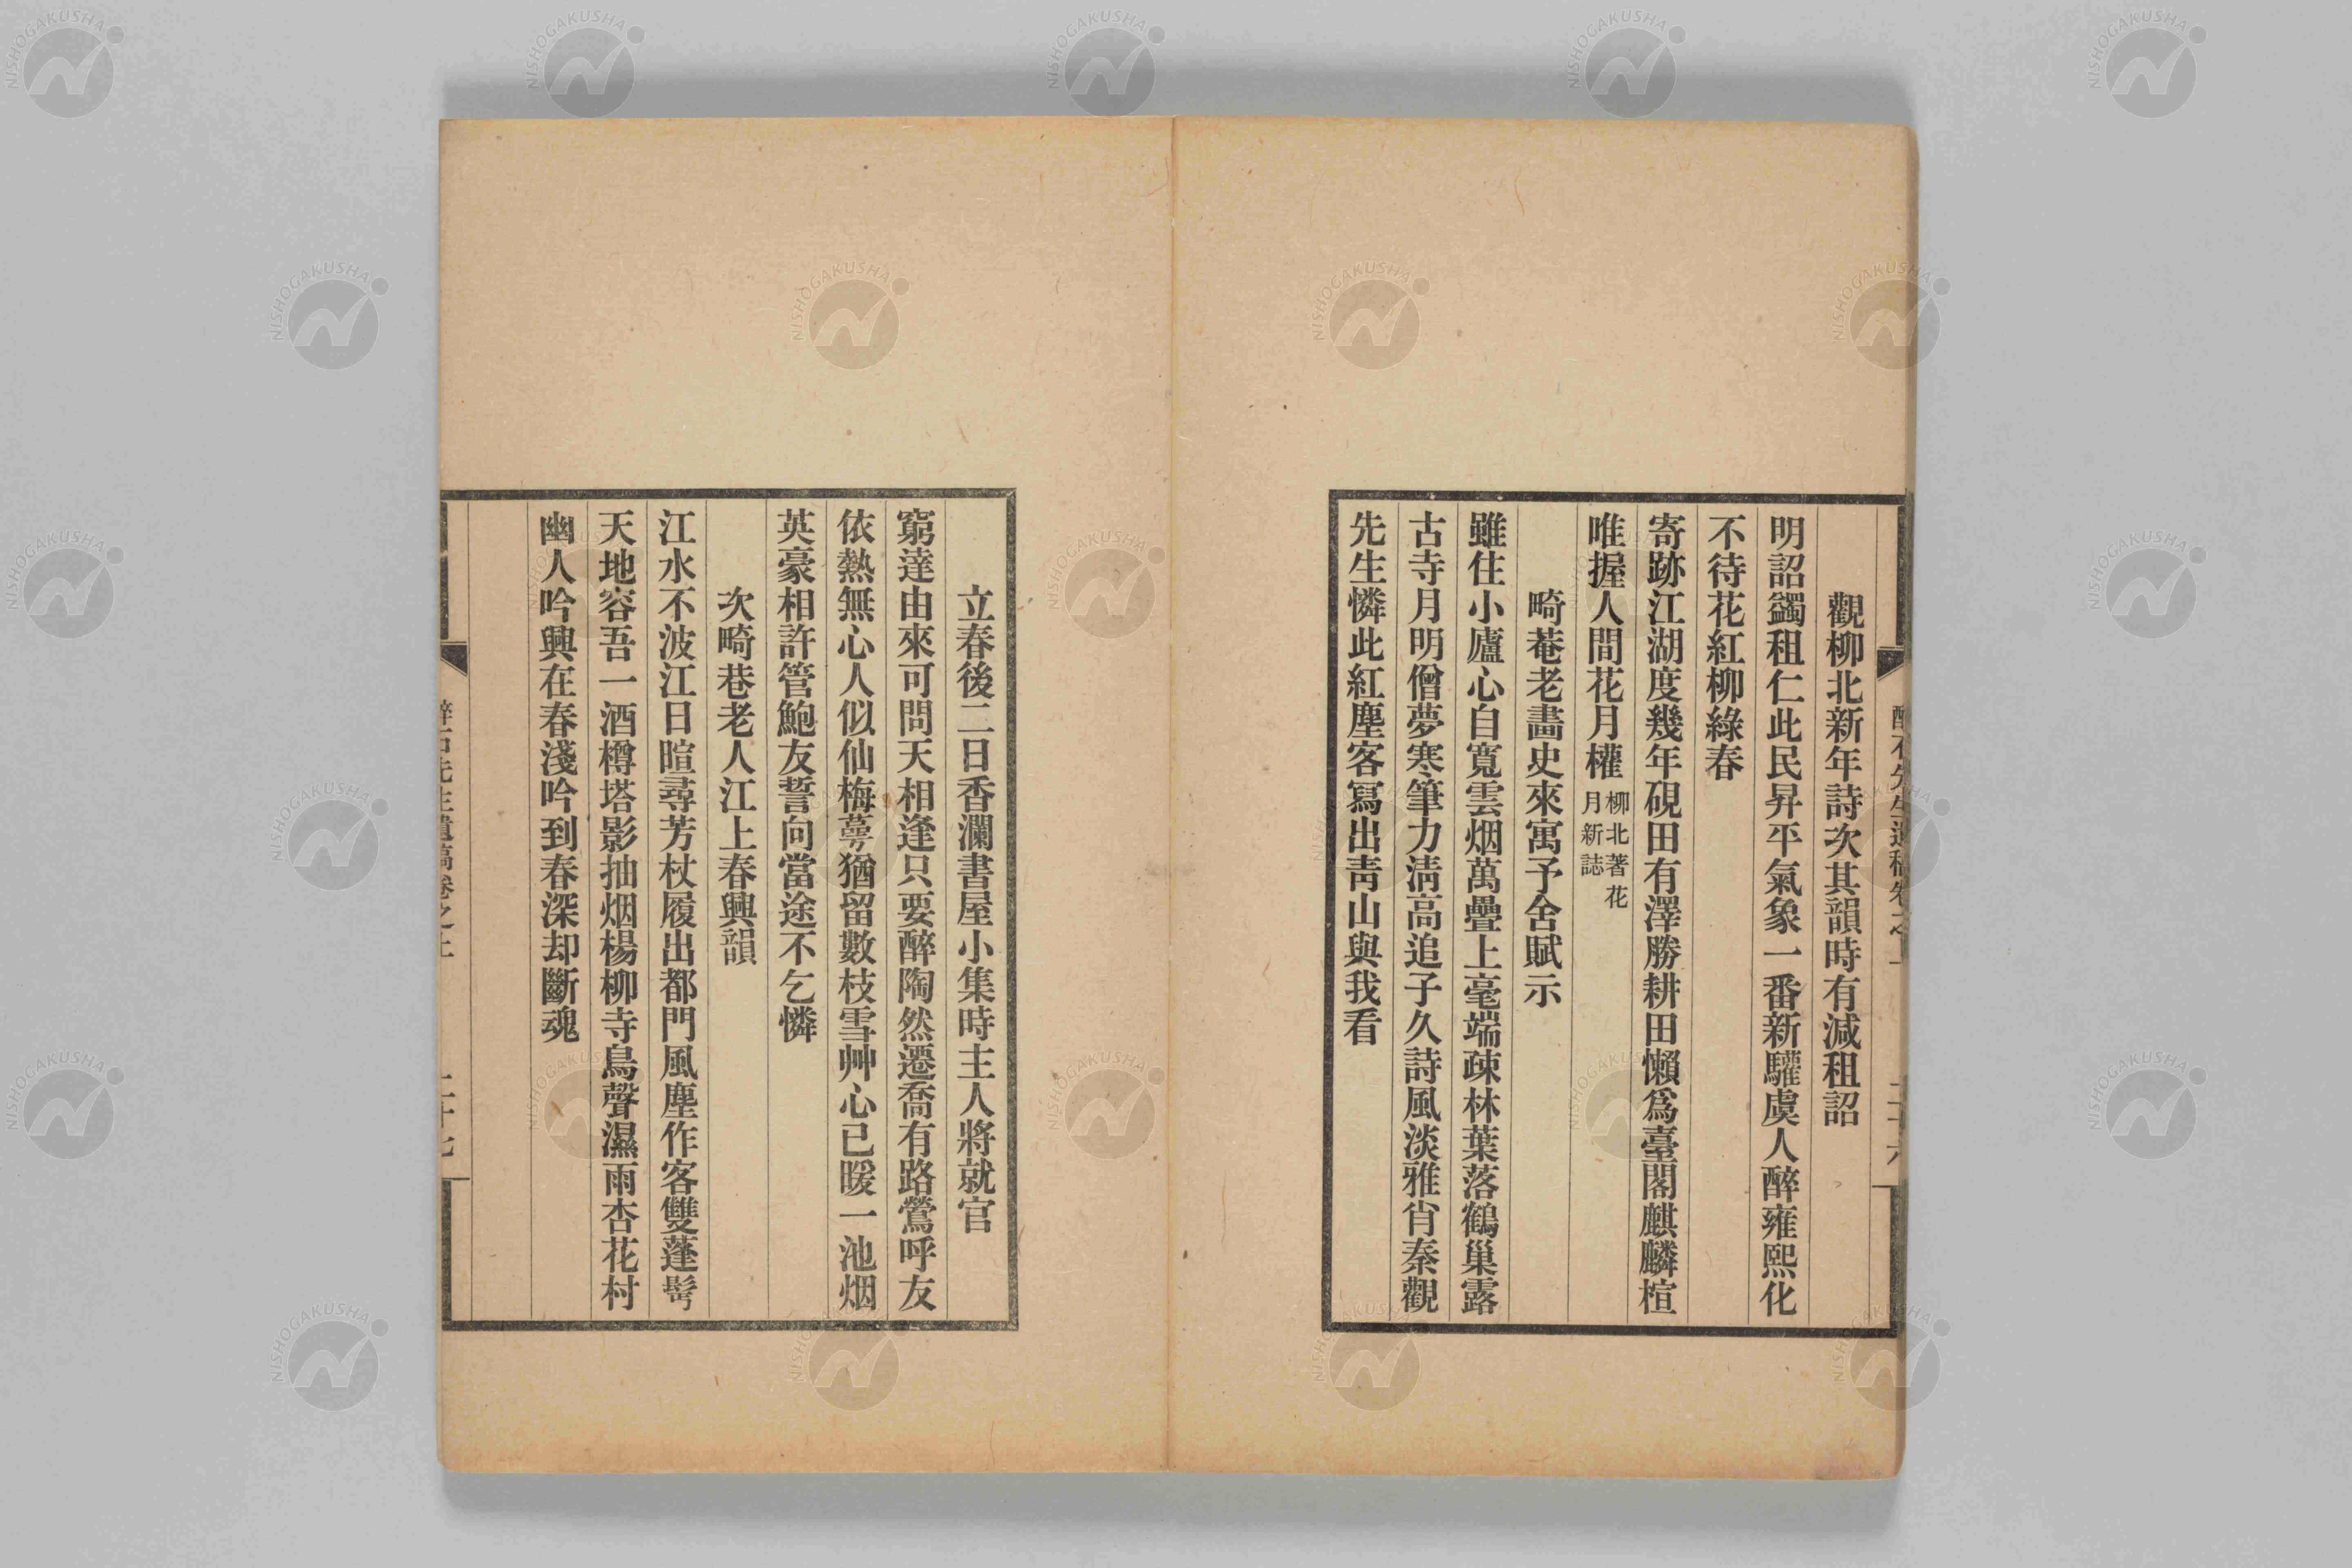 觀柳北新年詩次其韻時有減租詔
明詔蠲租仁此民昇平氣象一番新驩虞人醉雍熙化
不待花紅柳綠春
寄跡江湖度幾年硯田有澤勝耕田懶爲臺閣麒麟楦
唯握人間花月權
柳北著花
月新誌
畸菴老畫史來寓予舍賦示
雖住小廬心自寬雲烟萬疊上毫端疎林葉落鶴巢露
古寺月明僧夢寒筆力淸高追子久詩風淡雅肖秦觀
先生憐此紅塵客寫出靑山與我看
立春後二日香瀾書屋小集時主人將就官
窮達由來可問天相逢只要醉陶然遷喬有路鶯呼友
依熱無心人似仙梅蕚猶留數枝雪艸心已暖一池烟
英豪相許管鮑友誓向當途不乞憐
次畸巷老人江上春興韻
江水不波江日暄尋芳杖履出都門風塵作客雙蓬髩
天地容吾一酒樽塔影抽烟楊柳寺鳥聲濕雨杏花村
幽人吟興在春淺吟到春深却斷魂
NISHOGAKUSHA